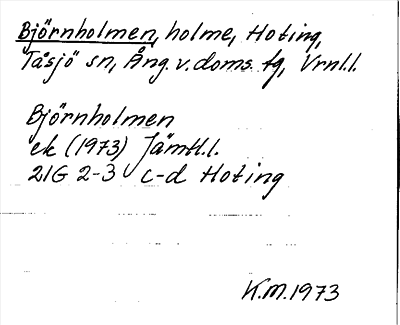 Björnholmen, holme, Hoting,
Tåsjö sn, Ång. v. doms. fg, Vrnl.l.
Björnholmen
ek (1973) Jämtl.l.
21G 2-3 c-d Hoting
K.M. 1973